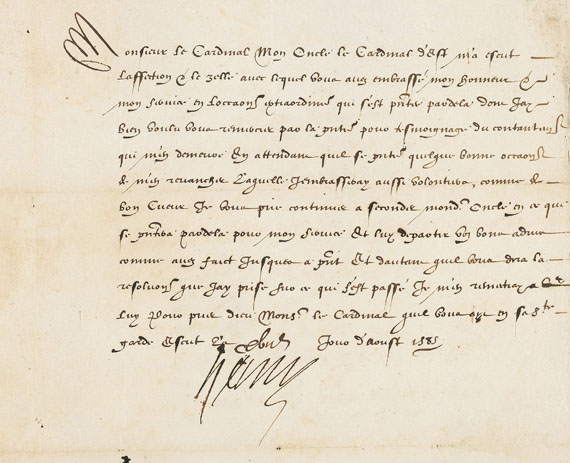 Monsieur le Cardinal Mon Oncle le Cardinal d'Est m'a escrit
l'affection & le zelle avec lequel vous avez embrassé mon honneur &
mon service en l'occaon extraordinre qui s'est pntee pardela dont Jay
bien voulu vous remercier par la pnte pour tesmoignage du contantemt
qui m'en demeure En attendant quil se pnte quelque bonne occaon
de m'en revancher Laquelle J'embrasseray aussi volontiers, comme de
bon Cueur Je vous prie continuer a seconder mond. Oncle en ce qui
se pntera pardela pour mon service Et luy departir voz bons advis
comme avez faict Jusques a pnt Et dautant quil vous dira la
resolution que Jay prise sur ce qui s'est passé Je m'en remettray a
luy Pour prier dieu Monsr le Cardinal quil vous aye en sa ste
garde Escrit Jour d'Aoust 1585
Henry